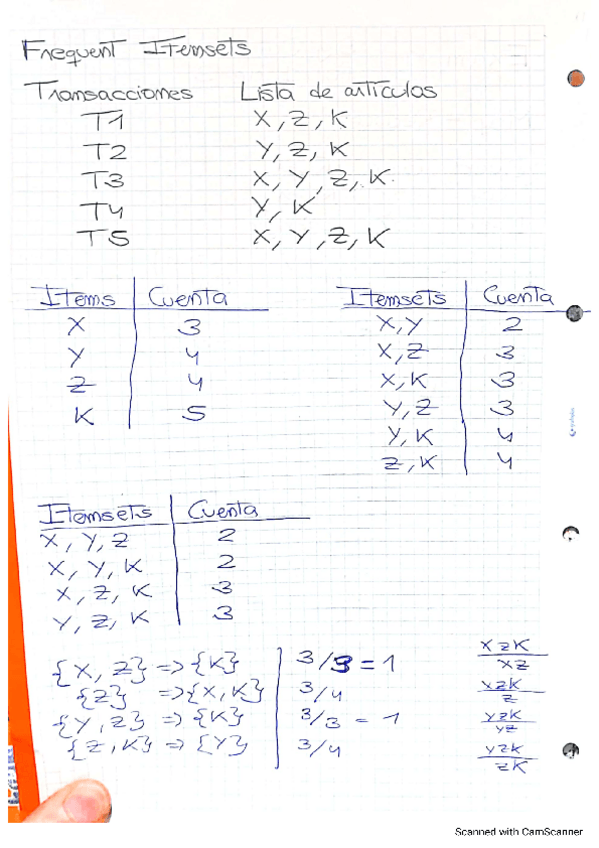 Frequent Itemsets
Transacciones Lista de artículos
T1 X, Z, K
T2 Y, Z, K
T3 X, Y, Z, K
T4 Y, K
T5 X, Y, Z, K
Items Cuenta
X 3
Y 4
Z 4
K 5
Itemsets Cuenta
X,Y 2
X,Z 3
X,K 3
Y,Z 3
Y,K 4
Z,K 4
Itemsets Cuenta
X, Y, Z 2
X, Y, K 2
X, Z, K 3
Y, Z, K 3
{X, Z} => {K} 3/3 = 1 XZK/XZ
{Z} => {X, K} 3/4 XZK/Z
{Y, Z} => {K} 3/3 = 1 YZK/YZ
{Z, K} => {Y} 3/4 YZK/ZK
Scanned with CamScanner